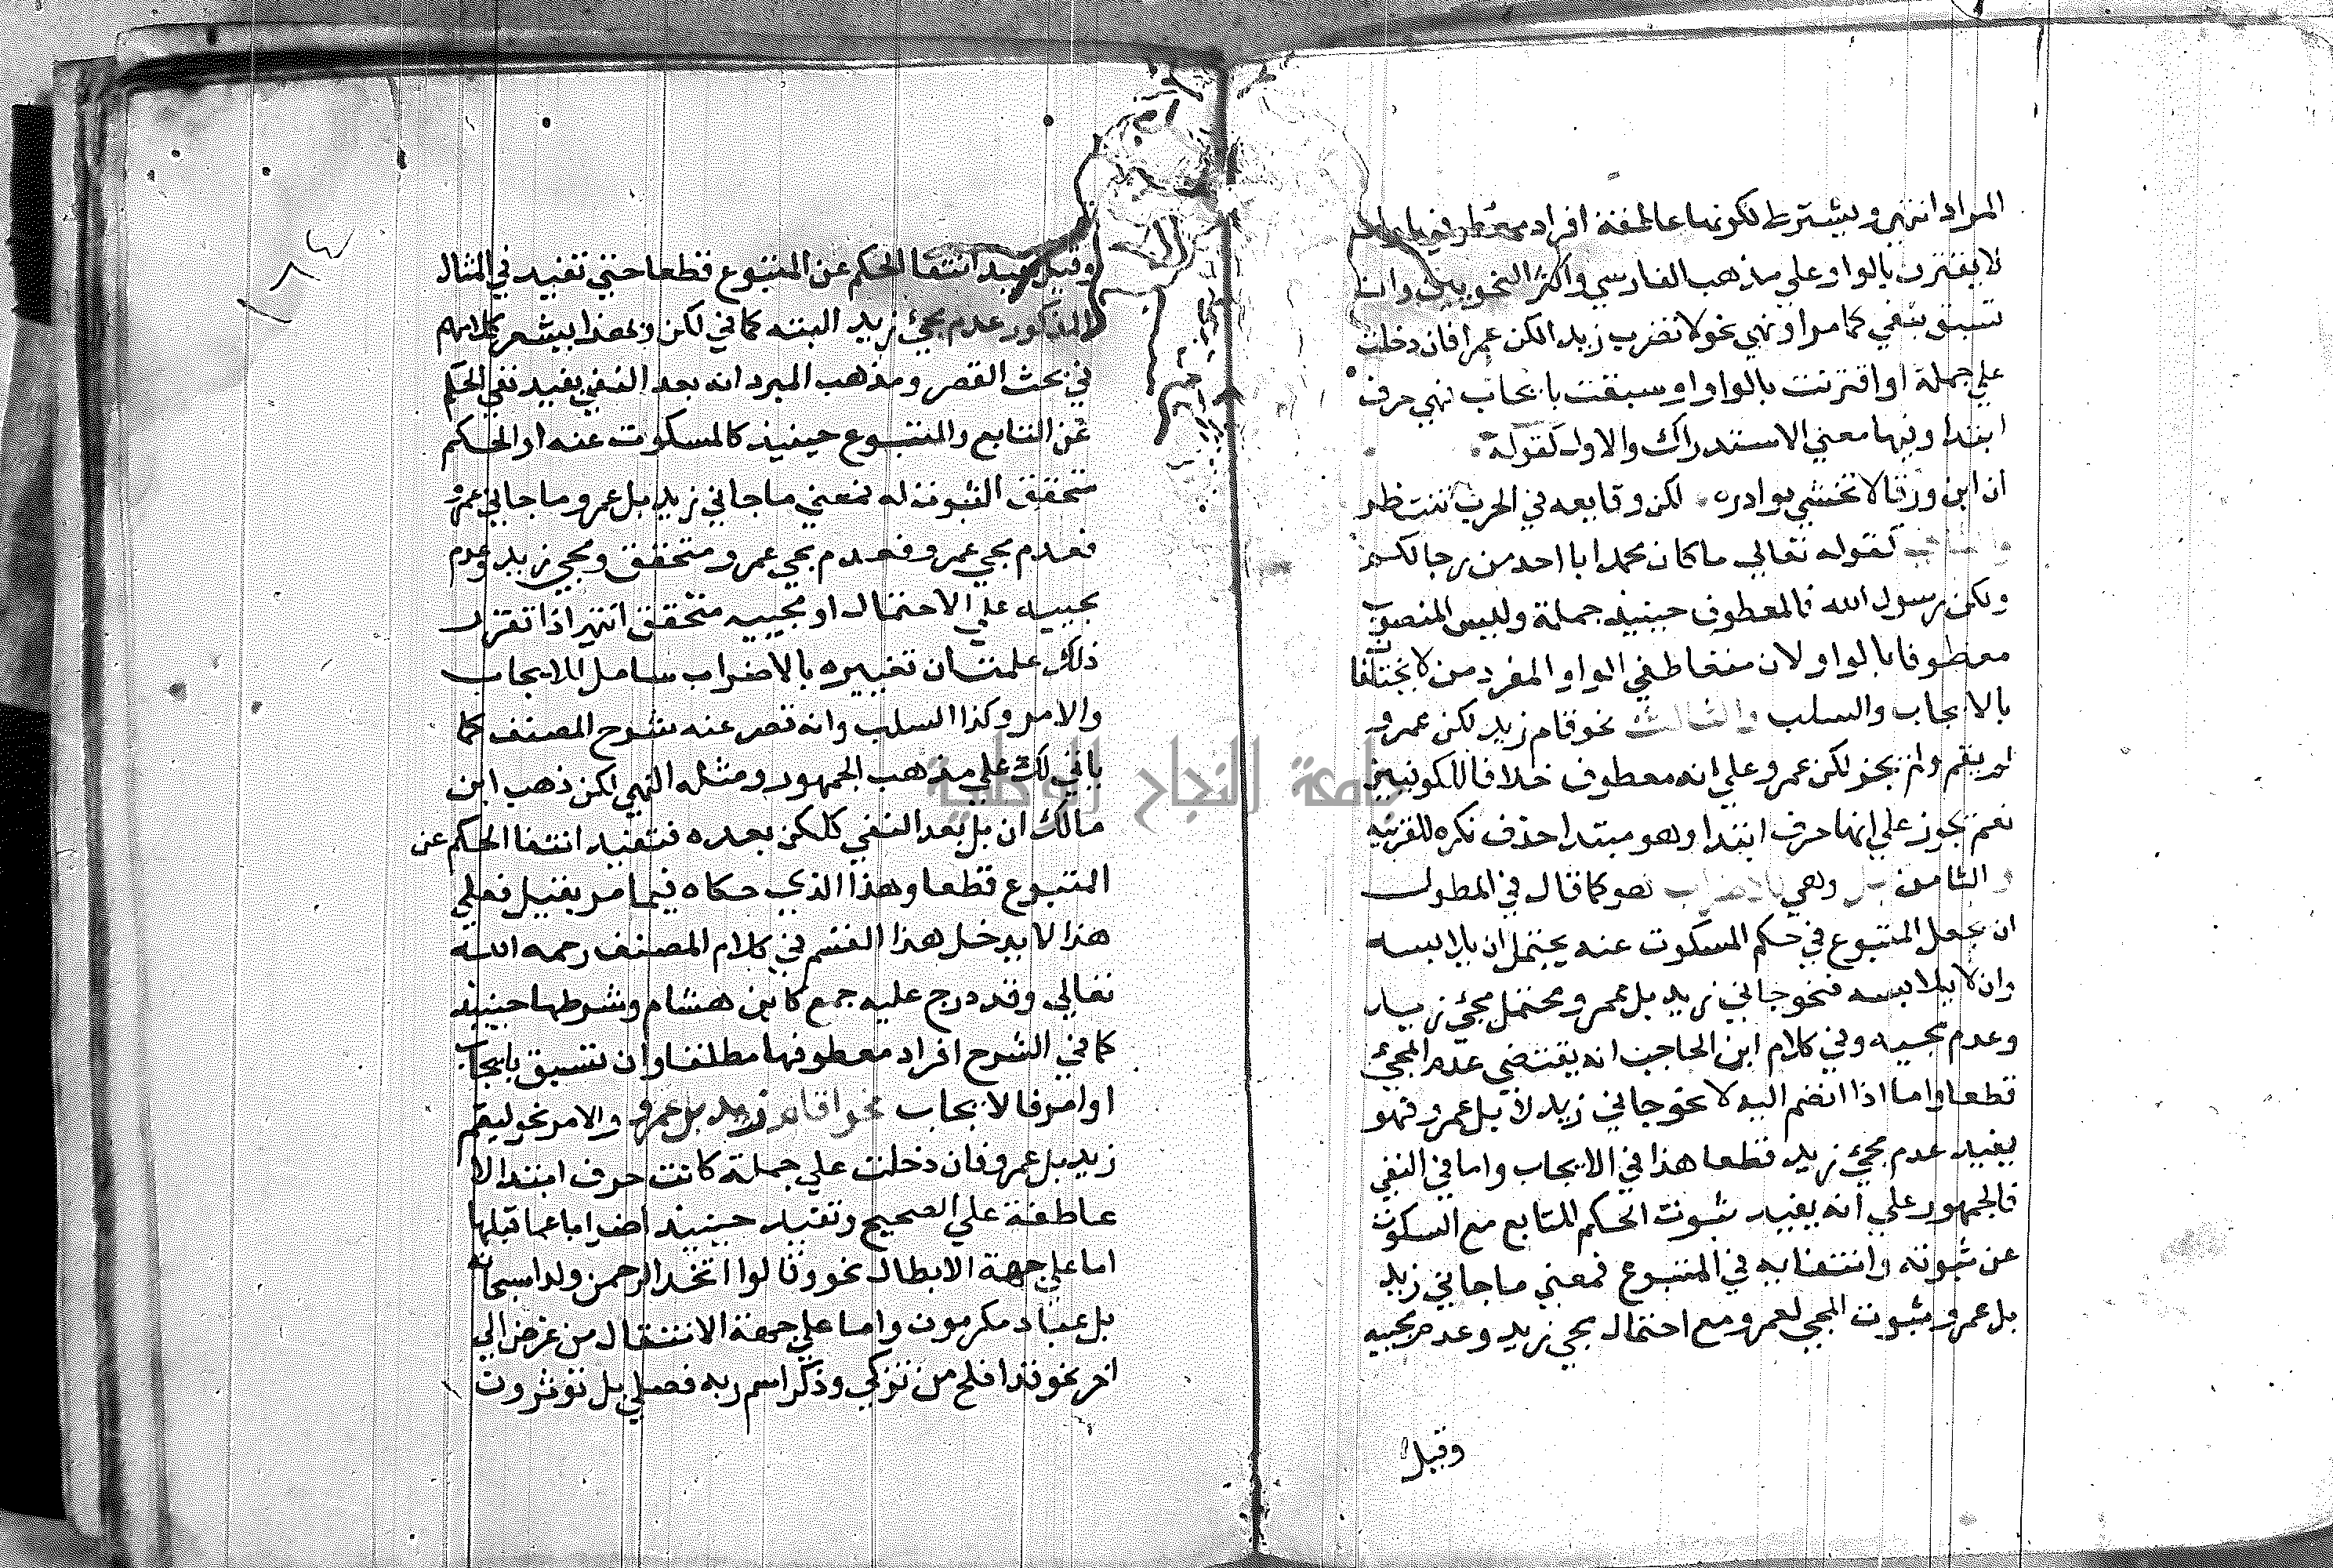 المراد انتهي ويشترط لكونها عاطفة افراد معطوفها وان
لا يقترن بالواو علي مذهب الفارسي واكثر النحويين وان
تسبق بنفي كما مر او نهي نحو لا تضرب زيدا لكن عمرا فان دخلت
علي جملة او اقترنت بالواو او سبقت بايجاب فهي حرف
ابتدا وفيها معني الاستدراك والاول كقوله
ان ابن ورقا لا تخشي بوادره لكن وقايعه في الحرب تنتظر
كقوله تعالي ما كان محمد ابا احد من رجالكم
ولكن رسول الله فالمعطوف حينيذ جملة وليس المنصوب
معطوفا بالواو لان متعاطفي الواو المفردين لا يختلفا
بالايجاب والسلب والثالث نحو قام زيد لكن عمرو
لم يقم ولم يجز لكن عمرو علي انه معطوف خلافا للكوفيين
نعم يجوز علي انها حرف ابتدا وهو مبتدا حذف نكره للقرينه
والثامن بل وهي للاضراب وهو كما قال في المطول
ان يجعل المتبوع في حكم المسكوت عنه يحتمل ان يلابسه
وان لا يلابسه فنحو جاني زيد بل عمرو يحتمل مجيء زيد
وعدم مجييه وفي كلام ابن الحاجب انه يقتضي عدم المجيء
قطعا واما اذا انضم اليه لا نحو جاني زيد لا بل عمرو فهو
يفيد عدم مجيء زيد قطعا هذا في الايجاب واما في النفي
فالجمهور علي انه يفيد ثبوت الحكم للتابع مع السكوت
عن ثبوته وانتفايه في المتبوع فمعني ما جاني زيد
بل عمرو ثبوت المجي لعمرو مع احتمال مجي زيد وعدم مجييه
وقيل
وقيل يفيد انتفا الحكم عن المتبوع قطعا حتي تفيد في المثال
المذكور عدم مجيء زيد البته كما في لكن وبهذا يشعر كلامهم
في بحث القصر ومذهب المبرد انه بعد النفي يفيد نفي الحكم
عن التابع والمتبوع حينيذ كالمسكوت عنه او الحكم
متحقق الثبوت له فمعني ما جاني زيد بل عمرو ما جاني عمرو
فعدم مجي عمرو فعدم مجي عمرو متحقق ومجي زيد وعدم
مجييه علي الاحتمال او مجييه متحقق انتهي اذا تقرر
ذلك علمت ان تعبيره بالاضراب شامل للايجاب
والامر وكذا السلب وانه قصر عنه شرح المصنف كما
ياتي لك علي مذهب الجمهور ومثله النهي لكن ذهب ابن
مالك ان بل بعد النفي كلكن بعده فتفيد انتفا الحكم عن
المتبوع قطعا وهذا الذي حكاه فيما مر بقيل فعلي
هذا لا يدخل هذا القسم في كلام المصنف رحمه الله
تعالي وقد درج عليه جمع كابن هشام وشرطها حينيذ
كما في الشرح افراد معطوفها مطلقا وان تسبق بايجاب
او امر فالايجاب نحو قام زيد بل عمرو والامر نحو ليقم
زيد بل عمرو فان دخلت علي جملة كانت حرف ابتدا لا
عاطفة علي الصحيح وتفيد حينيذ اضرابا عما قبلها
اما علي جهة الابطال نحو وقالوا اتخذ الرحمن ولدا سبحانه
بل عباد مكرمون واما علي جهة الانتقال من غرض الي
اخر نحو قد افلح من تزكي وذكر اسم ربه فصلي بل توثرون
جامعة النجاح الوطنية